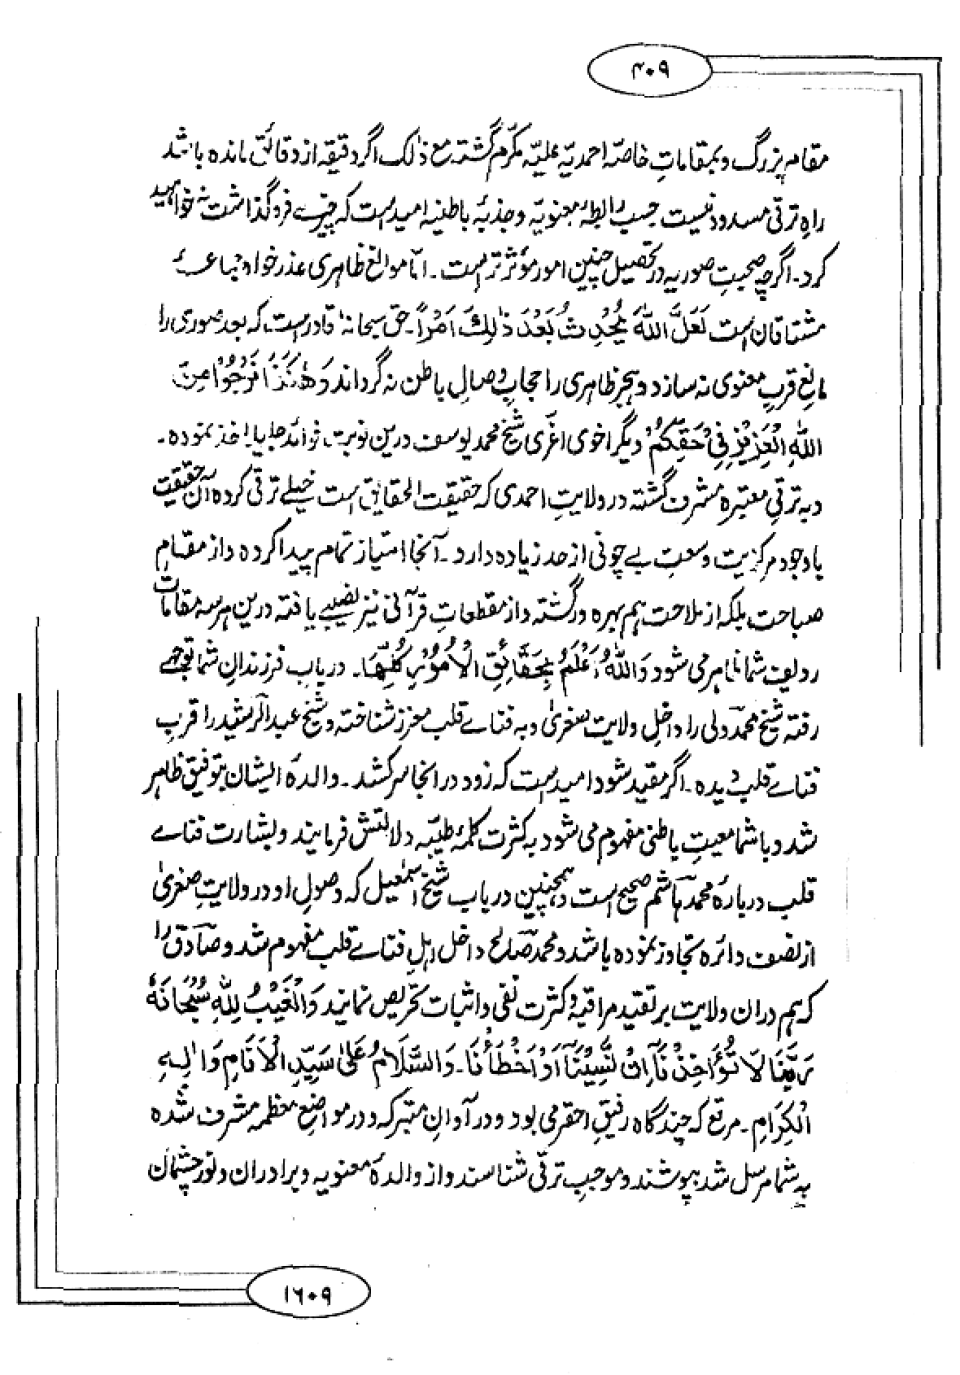 ۴۰۹
مقام بزرگ و بمقاماتِ خاصّہ احمدیّہ علیّہ مکرّم گشتہ مع ذٰلک اگر دقیقہ از دقائق ماندہ باشد
راہِ ترقی مسدود نیست حسبِ رابطۂ معنویّہ و جذبۂ باطنیہ امید است کہ چیزے فروگذاشت نہ خواہید
کرد۔ اگرچہ صحبتِ صوریہ در تحصیل چنین امور مؤثر تر است۔ امّا موانع ظاہری عذر خواہ
مشتاقان است لَعَلَّ اللّٰہَ یُحْدِثُ بَعْدَ ذٰلِکَ اَمْرًا۔ حق سبحانہٗ قادر است کہ بعد صوری را
مانع قربِ معنوی نہ سازد و ہجرِ ظاہری را حجابِ وصالِ باطن نہ گرداند وَھٰکَذَا نَرْجُوْا مِنَ
اللّٰہِ الْعَزِیْزِ فِیْ حَقِّکُمْ دیگر اخوی اعزی شیخ محمد یوسف درین نوبت فوائد جلیلہ اخذ نمودہ۔
و بہ ترقیٔ معتبرہ مشرف گشتہ در ولایتِ احمدی کہ حقیقت الحقائق است خیلے ترقی کردہ آن حقیقت
باوجود مرکزیت وسعتِ بے چونی از حد زیادہ دارد۔ آنجا امتیاز تمام پیدا کردہ و از مقامِ
صباحت بلکہ از ملاحت ہم بہرہ ور گشتہ و از مقطعاتِ قرآنی نیز نصیبے یافتہ درین ہر سہ مقامات
ردیف شما ظاہر می شود وَاللّٰہُ اَعْلَمُ بِحَقَائِقِ الْاُمُوْرِ کُلِّھَا۔ در باب فرزندانِ شما توجہے
رفتہ شیخ محمد ولی را داخلِ ولایت صغریٰ و بہ فناے قلب معزز شناختہ و شیخ عبدالرشید را قربِ
فناے قلب دیدہ۔ اگر مقید شود امید است کہ زود در انجا سر کشد۔ والدۂ ایشان بتوفیق ظاہر
شد و با شما معیتِ باطنی مفہوم می شود بہ کثرت کلمۂ طیّبہ دلالتش فرمایند و بشارت فناے
قلب دربارۂ محمد ہاشم صحیح است و ہمچنین در باب شیخ اسمٰعیل کہ وصولِ او در ولایتِ صغریٰ
از نصف دائرہ تجاوز نمودہ باشد و محمد صالح داخلِ اہلِ فناے قلب مفہوم شد و صادق را
کہ ہم دران ولایت بر تقید مراقبہ و کثرت نفی و اثبات تحریص نمایند وَالْغَیْبُ لِلّٰہِ سُبْحَانَہٗ
رَبَّنَا لَا تُؤَاخِذْنَا اِنْ نَّسِیْنَا اَوْ اَخْطَأْنَا۔ وَالسَّلَامُ عَلیٰ سَیِّدِ الْاَنَامِ وَاٰلِہِ
الْکِرَامِ۔ مرقع کہ چند گاہ رفیقِ احقر می بود و در آوانِ متبرکہ و در مواضعِ معظمہ مشرف شدہ
بہ شما مرسل شد بپوشند و موجبِ ترقی شناسند و از والدۂ معنویہ و برادران و نورچشمان
۱۶۰۹